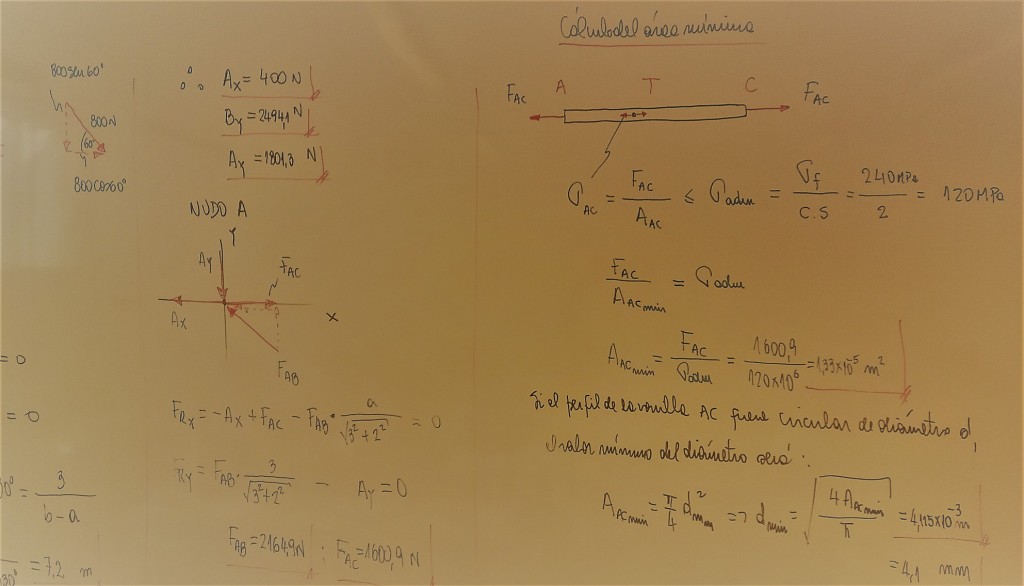 800 sen 60°
h
800N
60°
800cos60°
= 0
= 0
30° = 3 / (b-a)
30° = 7,2 m
∴ Ax = 400 N
By = 2494,1 N
Ay = 1801,3 N
NUDO A
Y
Ay
FAC
Ax
X
FAB
FRx = -Ax + FAC - FAB · a / √(3²+2²) = 0
FRy = FAB · 3 / √(3²+2²) - Ay = 0
FAB = 2164,9 N ; FAC = 1600,9 N
Cálculo del área mínima
FAC A T C FAC
σAC = FAC / AAC ≤ σadm = σf / C.S = 240 MPa / 2 = 120 MPa
FAC / AACmin = σadm
AACmin = FAC / σadm = 1600,9 / 120x10⁶ = 1,33x10⁻⁵ m²
Si el perfil de la varilla AC fuere circular de diámetro d,
el valor mínimo del diámetro será :
AACmin = π/4 d²min => dmin = √(4AACmin / π) = 4,115x10⁻³ m
= 4,1 mm